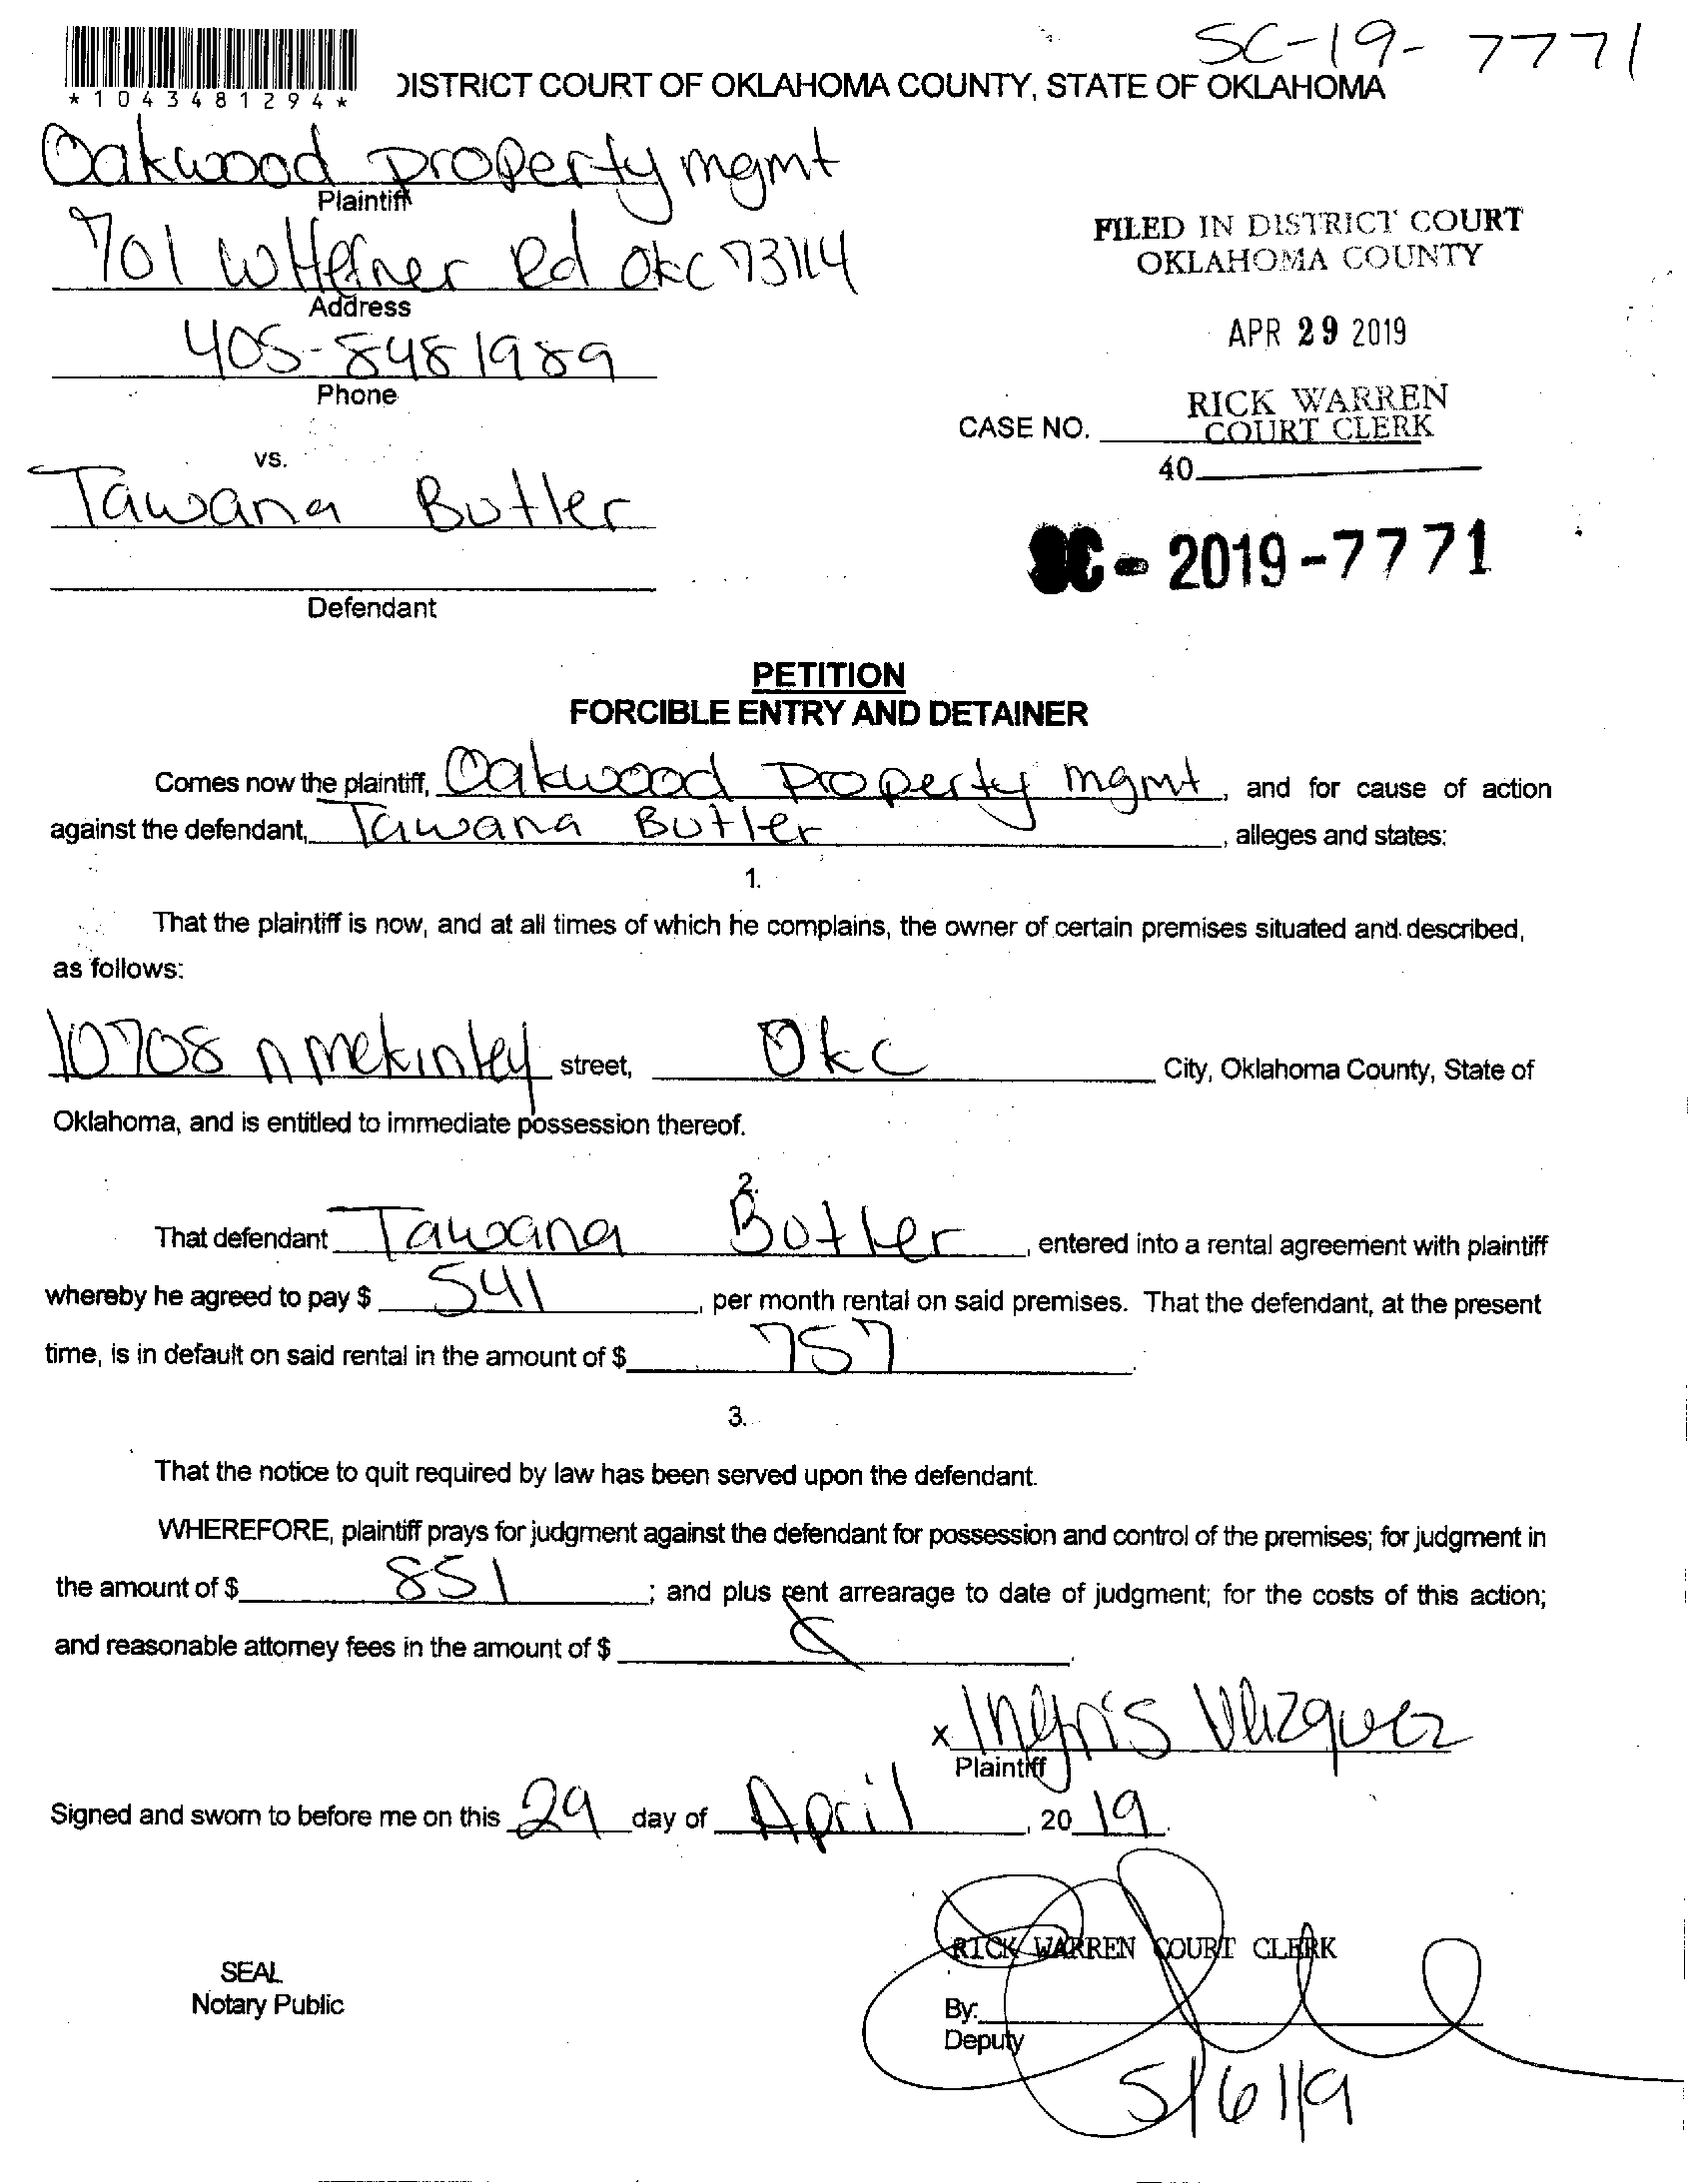 SC-19-7771
*1043481294*
DISTRICT COURT OF OKLAHOMA COUNTY, STATE OF OKLAHOMA
Oakwood property mgmt
Plaintiff
701 W Hefner Rd OKC 73114
Address
405-848 1989
Phone
FILED IN DISTRICT COURT
OKLAHOMA COUNTY
APR 29 2019
RICK WARREN
COURT CLERK
CASE NO.
40
vs.
Tawana Butler
Defendant
SC-2019-7771
PETITION
FORCIBLE ENTRY AND DETAINER
Comes now the plaintiff, Oakwood Property mgmt, and for cause of action
against the defendant, Tawana Butler, alleges and states:
1.
That the plaintiff is now, and at all times of which he complains, the owner of certain premises situated and described,
as follows:
10708 n mckinley street, OKC City, Oklahoma County, State of
Oklahoma, and is entitled to immediate possession thereof.
2.
That defendant Tawana Butler, entered into a rental agreement with plaintiff
whereby he agreed to pay $ 541, per month rental on said premises. That the defendant, at the present
time, is in default on said rental in the amount of $ 757.
3.
That the notice to quit required by law has been served upon the defendant.
WHEREFORE, plaintiff prays for judgment against the defendant for possession and control of the premises; for judgment in
the amount of $ 851; and plus rent arrearage to date of judgment; for the costs of this action;
and reasonable attorney fees in the amount of $
x Ingris Vazquez
Plaintiff
Signed and sworn to before me on this 29 day of April, 2019.
RICK WARREN COURT CLERK
SEAL
Notary Public
By:
Deputy
5/6/19